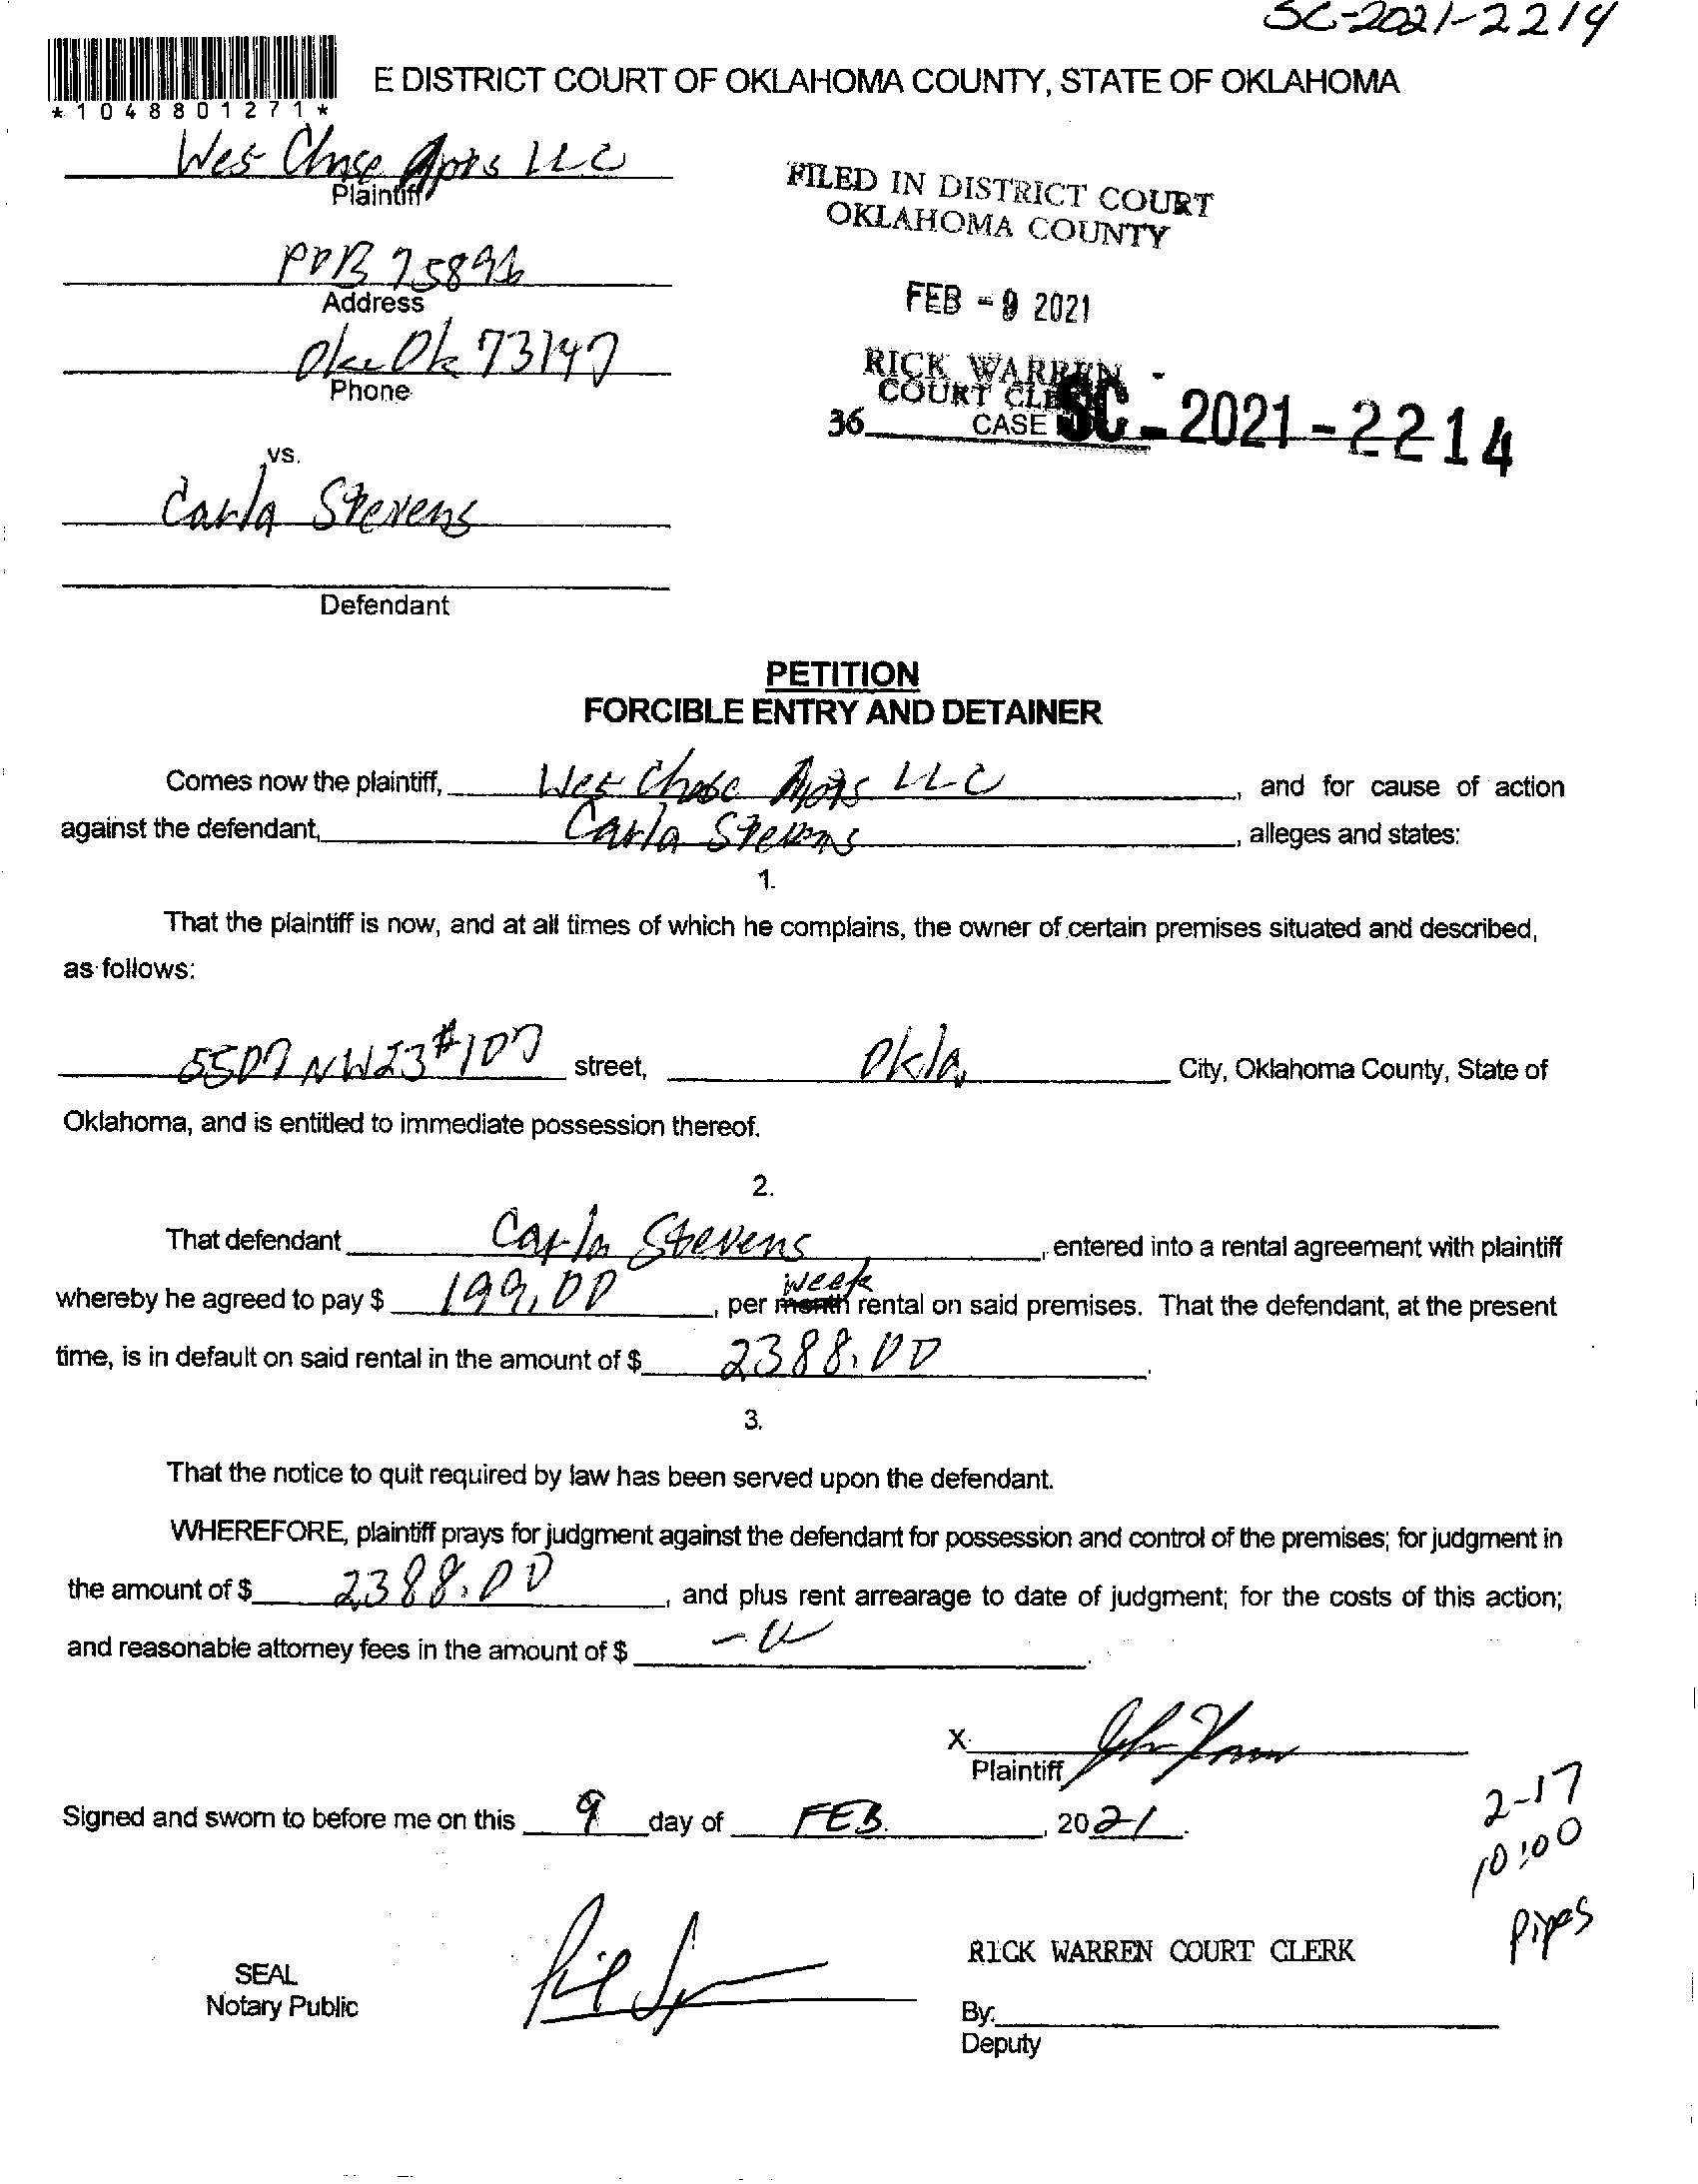 SC-2021-2214
E DISTRICT COURT OF OKLAHOMA COUNTY, STATE OF OKLAHOMA
*1048801271*
Wes Chase Apts LLC
Plaintiff
POB 75896
Address
Okc Ok 73147
Phone
FILED IN DISTRICT COURT
OKLAHOMA COUNTY
FEB - 9 2021
RICK WARREN
COURT CLE
36
CASE SC - 2021 - 2214
vs.
Carla Stevens
Defendant
PETITION
FORCIBLE ENTRY AND DETAINER
Comes now the plaintiff, Wes Chase Apts LLC, and for cause of action
against the defendant, Carla Stevens, alleges and states:
1.
That the plaintiff is now, and at all times of which he complains, the owner of certain premises situated and described,
as follows:
5507 NW23 #107 street, Okla, City, Oklahoma County, State of
Oklahoma, and is entitled to immediate possession thereof.
2.
That defendant Carla Stevens, entered into a rental agreement with plaintiff
week
whereby he agreed to pay $ 199.00, per month rental on said premises. That the defendant, at the present
time, is in default on said rental in the amount of $ 2388.00.
3.
That the notice to quit required by law has been served upon the defendant.
WHEREFORE, plaintiff prays for judgment against the defendant for possession and control of the premises; for judgment in
the amount of $ 2388.00, and plus rent arrearage to date of judgment; for the costs of this action;
and reasonable attorney fees in the amount of $
X
Plaintiff
Signed and sworn to before me on this 9 day of FEB., 2021.
2-17
10:00
Pipes
RICK WARREN COURT CLERK
SEAL
Notary Public
By:
Deputy